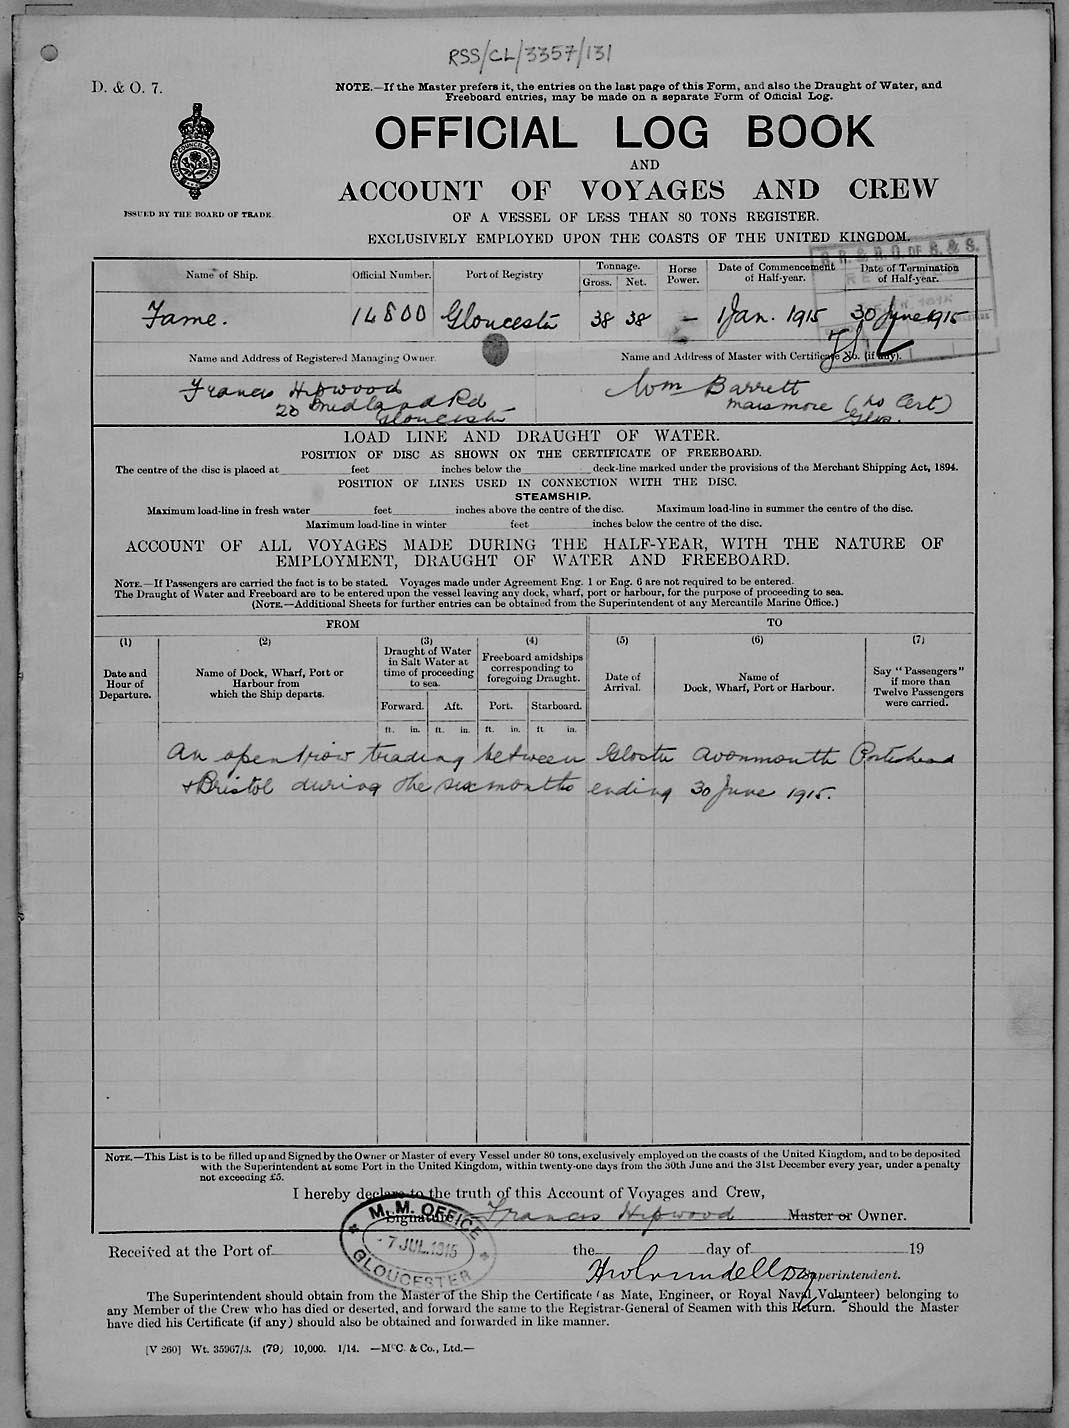 RSS/CL/3357/131
D. & O. 7.
NOTE.—If the Master prefers it, the entries on the last page of this Form, and also the Draught of Water, and
Freeboard entries, may be made on a separate Form of Official Log.
OFFICIAL LOG BOOK
AND
ACCOUNT OF VOYAGES AND CREW
ISSUED BY THE BOARD OF TRADE
OF A VESSEL OF LESS THAN 80 TONS REGISTER.
EXCLUSIVELY EMPLOYED UPON THE COASTS OF THE UNITED KINGDOM.
Name of Ship. Official Number. Port of Registry Tonnage. Gross. Net. Horse Power. Date of Commencement of Half-year. Date of Termination of Half-year.
Fame. 14800 Gloucester 38 38 — 1 Jan. 1915 30 June 1915
Name and Address of Registered Managing Owner. Name and Address of Master with Certificate No. (if any).
Francis Hipwood Wm Barrett
20 Midland Rd Maismore (no Cert)
Gloucester Glos.
LOAD LINE AND DRAUGHT OF WATER.
POSITION OF DISC AS SHOWN ON THE CERTIFICATE OF FREEBOARD.
The centre of the disc is placed at feet inches below the deck-line marked under the provisions of the Merchant Shipping Act, 1894.
POSITION OF LINES USED IN CONNECTION WITH THE DISC.
STEAMSHIP.
Maximum load-line in fresh water feet inches above the centre of the disc. Maximum load-line in summer the centre of the disc.
Maximum load-line in winter feet inches below the centre of the disc.
ACCOUNT OF ALL VOYAGES MADE DURING THE HALF-YEAR, WITH THE NATURE OF
EMPLOYMENT, DRAUGHT OF WATER AND FREEBOARD.
NOTE.—If Passengers are carried the fact is to be stated. Voyages made under Agreement Eng. 1 or Eng. 6 are not required to be entered.
The Draught of Water and Freeboard are to be entered upon the vessel leaving any dock, wharf, port or harbour, for the purpose of proceeding to sea.
(NOTE.—Additional Sheets for further entries can be obtained from the Superintendent of any Mercantile Marine Office.)
FROM TO
(1) (2) (3) (4) (5) (6) (7)
Date and Hour of Departure. Name of Dock, Wharf, Port or Harbour from which the Ship departs. Draught of Water in Salt Water at time of proceeding to sea. Freeboard amidships corresponding to foregoing Draught. Date of Arrival. Name of Dock, Wharf, Port or Harbour. Say "Passengers" if more than Twelve Passengers were carried.
Forward. Aft. Port. Starboard.
ft. in. ft. in. ft. in. ft in.
An open trow trading between Gloster Avonmouth Portishead
& Bristol during the six months ending 30 June 1915.
NOTE.—This List is to be filled up and Signed by the Owner or Master of every Vessel under 80 tons, exclusively employed on the coasts of the United Kingdom, and to be deposited
with the Superintendent at some Port in the United Kingdom, within twenty-one days from the 30th June and the 31st December every year, under a penalty
not exceeding £5.
I hereby declare to the truth of this Account of Voyages and Crew,
Signature Francis Hipwood Master or Owner.
M. M. OFFICE
7 JUL. 1915
GLOUCESTER
Received at the Port of the day of 19
Superintendent.
The Superintendent should obtain from the Master of the Ship the Certificate (as Mate, Engineer, or Royal Naval Volunteer) belonging to
any Member of the Crew who has died or deserted, and forward the same to the Registrar-General of Seamen with this Return. Should the Master
have died his Certificate (if any) should also be obtained and forwarded in like manner.
[V 260] Wt. 35967/3. (79) 10,000. 1/14. —McC. & Co., Ltd.—